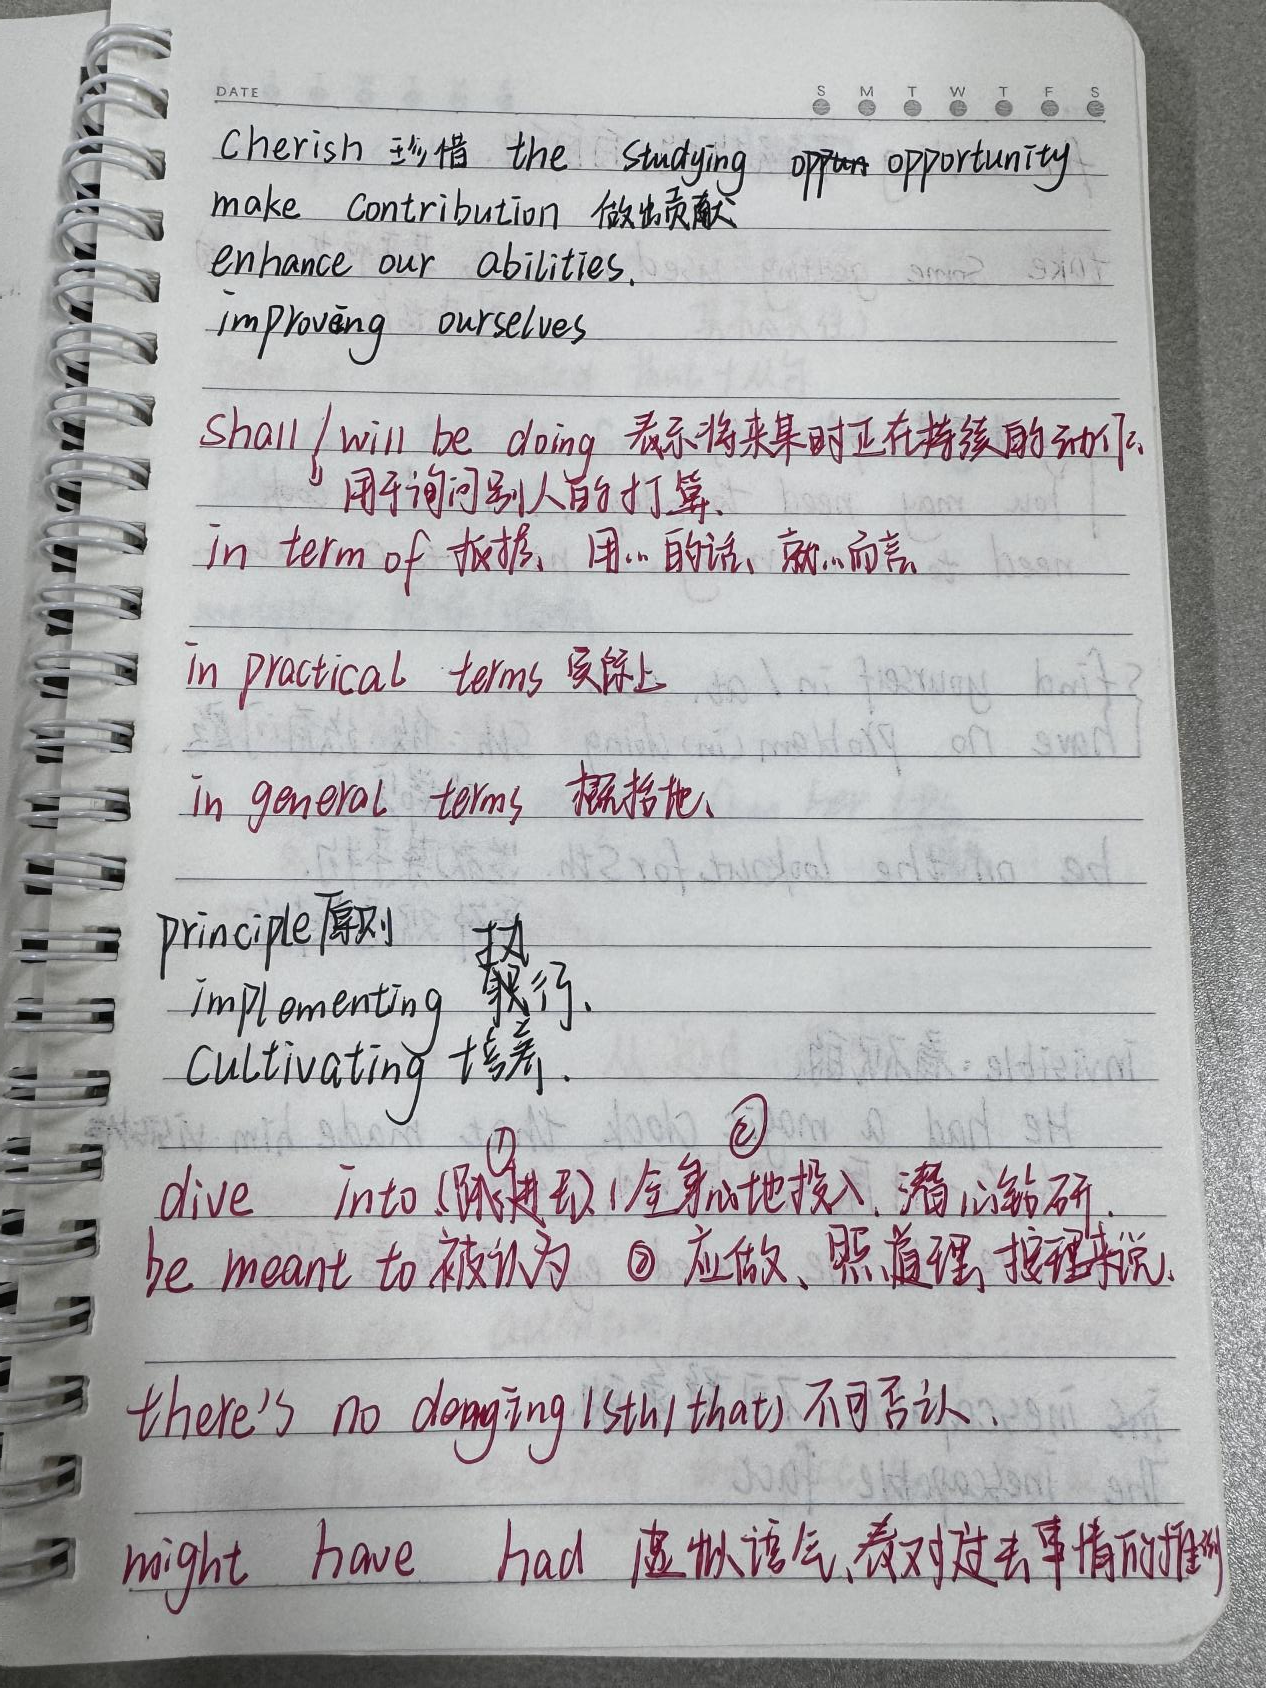 DATE S M T W T F S
Cherish 珍惜 the studying opportunity
make contribution 做出贡献
enhance our abilities.
improving ourselves
shall / will be doing 表示将来某时正在持续的动作、
用于询问别人的打算、
in term of 根据、用… 的话、就…而言、
in practical terms 实际上
in general terms 概括地、
principle 原则
执
implementing 执行、
Cultivating 培养.
① ②
dive into (跳进去) / 全身心地投入、潜心钻研.
be meant to 被认为 ② 应做、照道理、按理来说、
there's no denying (sth / that) 不可否认、
might have had 虚拟语气、表对过去事情的推测